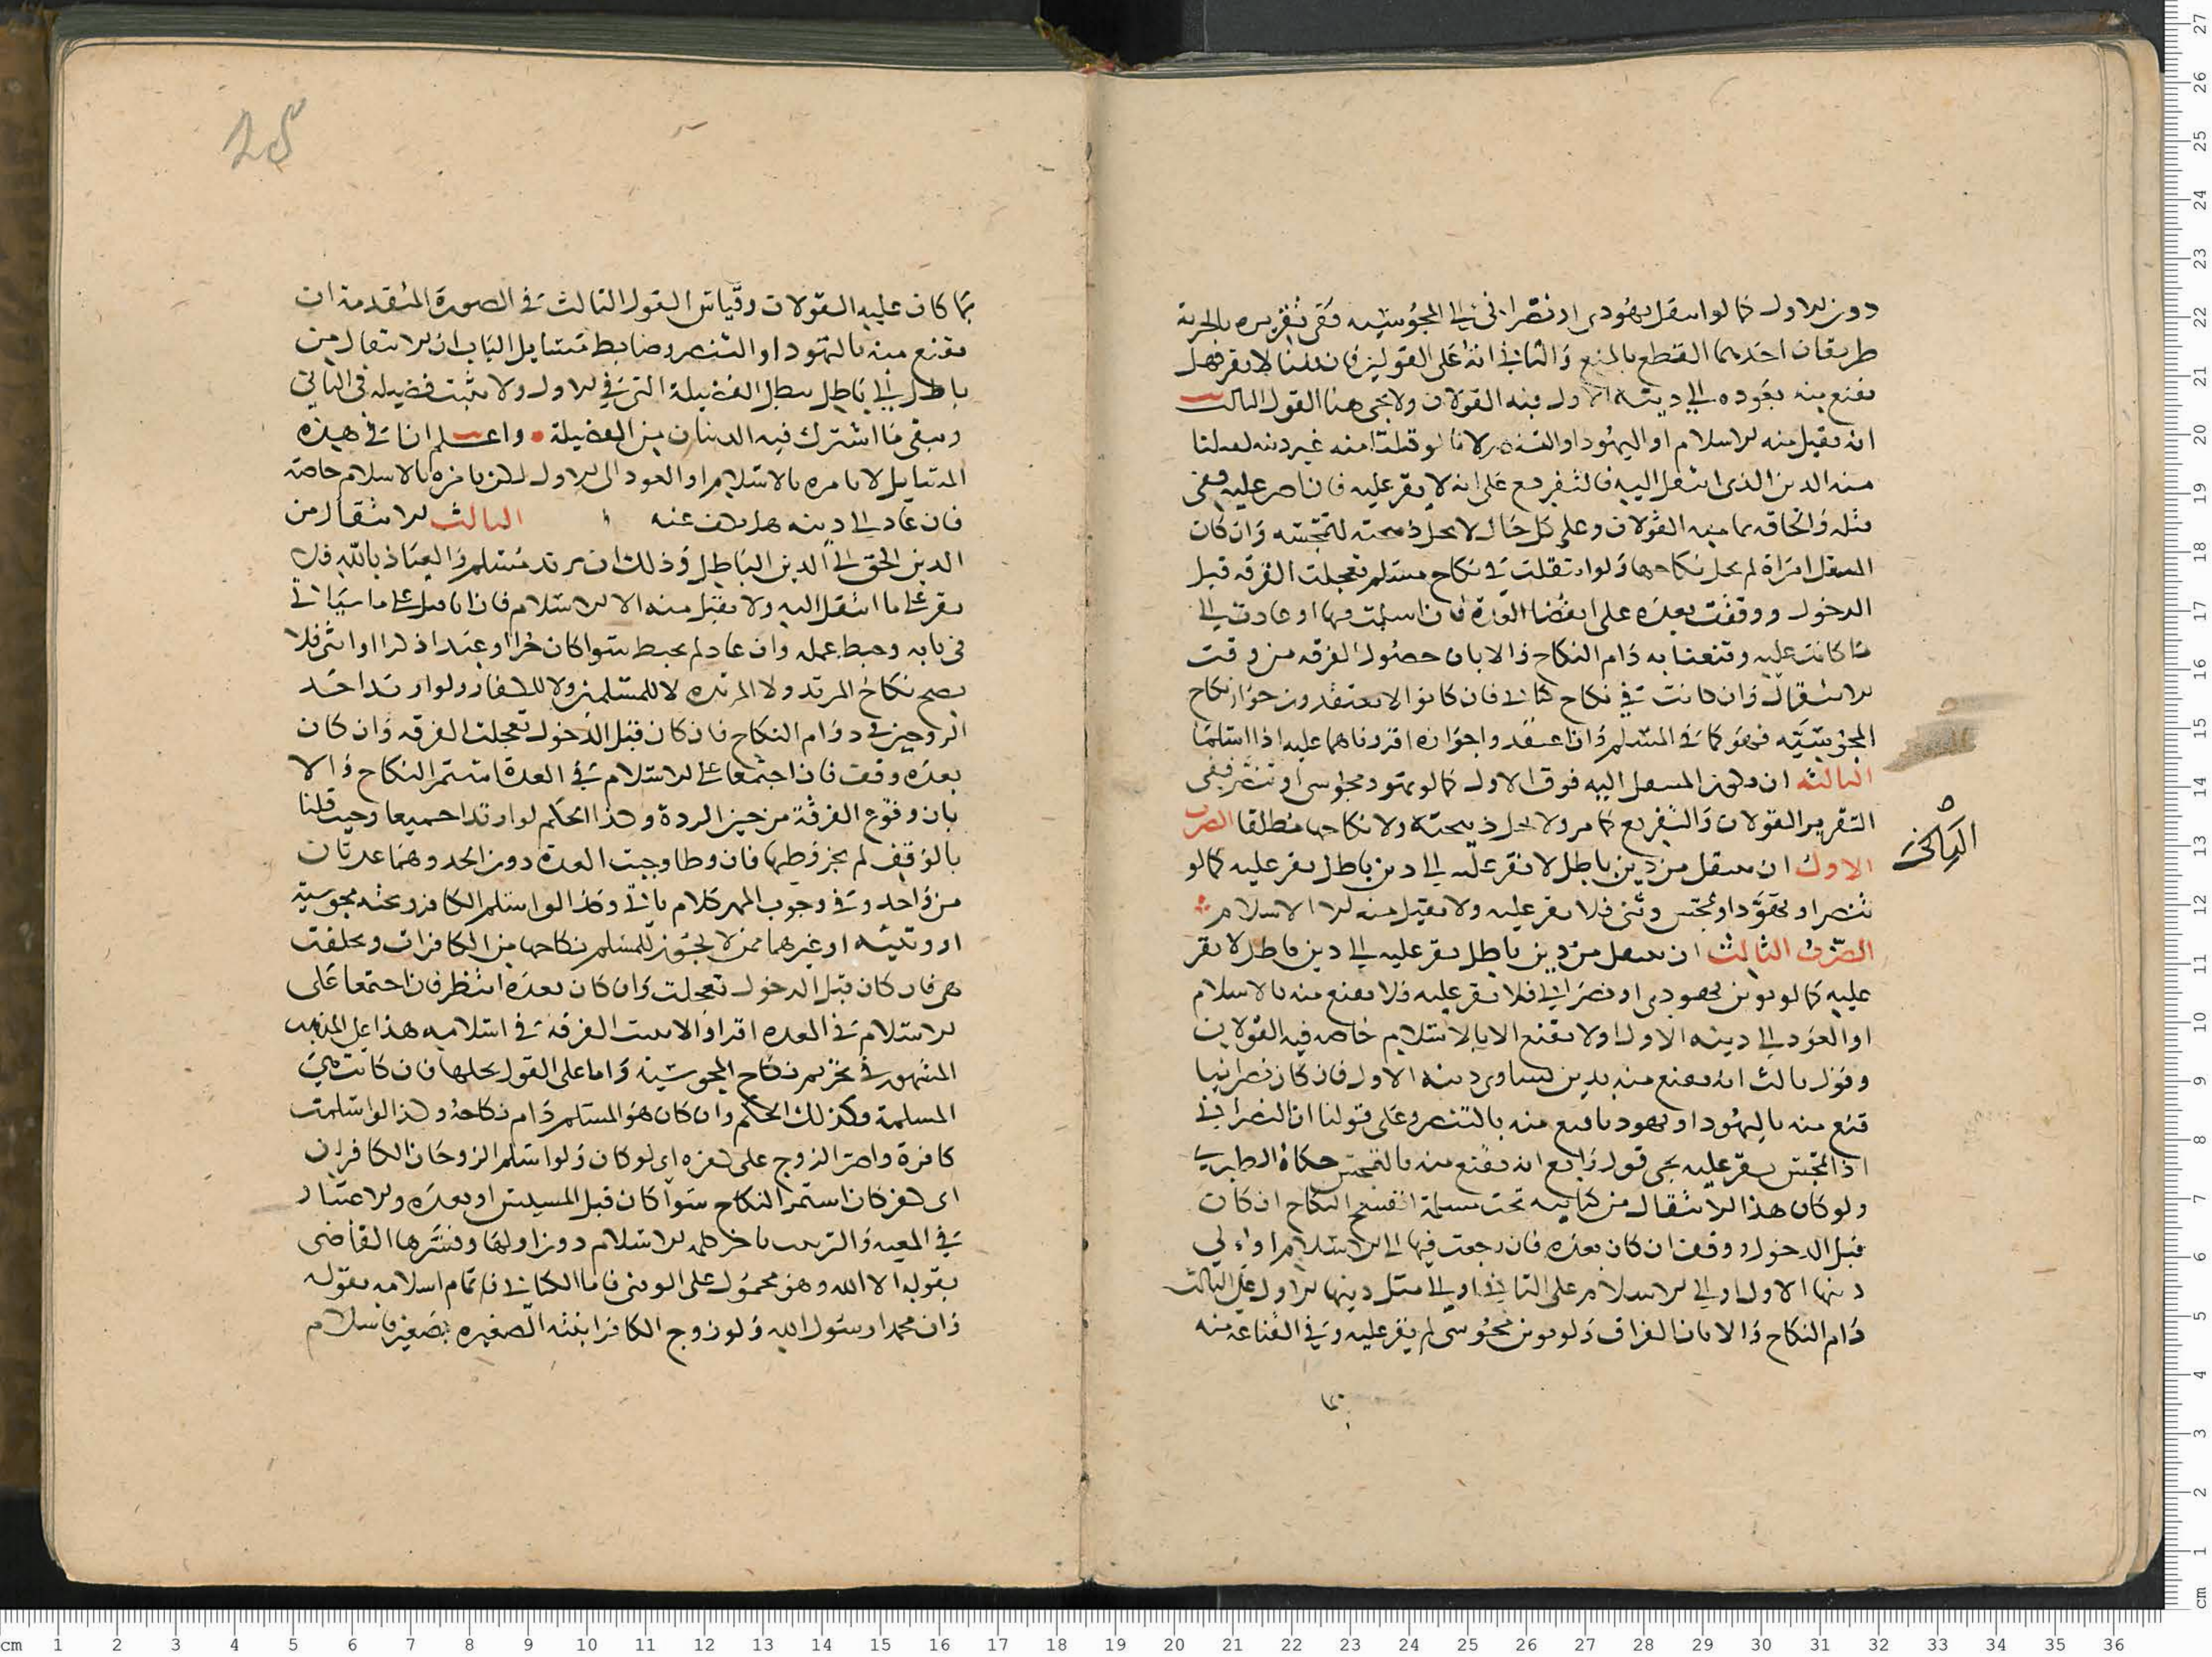 دون الاول كما لو انتقل يهودي او نصراني الى المجوسية ففي تقريره بالجزية
طريقان احدهما القطع بالمنع والثاني انه على القولين فان قلنا لا يقر فهل
نقنع منه بعوده الى دينه الاول فيه القولان ولا يجي هنا القول الثالث
انه يقبل منه الاسلام او اليهود او التنصر لانا لو قبلنا منه غير دينه لقبلنا
منه الدين الذي انتقل اليه فالتفريع على انه لا يقر عليه فان اصر عليه ففي
قتله والحاقه بمامنه القولان وعلى كل حال لا يحل ذبيحته لتمجسه وان كان
المنتقل امراة لم يحل نكاحها ولو انتقلت في نكاح مسلم تعجلت الفرقة قبل
الدخول ووقفت بعده على انقضا العدة فان اسلمت فيها او عادت الى
ما كانت عليه وقنعنا به دام النكاح والا بان حصول الفرقه من وقت
الانتقال وان كانت في نكاح كتابي فان كانوا لا يعتقدون جواز نكاح
المجوسية فهو كما في المسلم وان اعتقدوا جوازه اقررناهما عليه اذا اسلما
الثالثه ان يكون المنتقل اليه فوق الاول كما لو تهود مجوسي او تنصر ففي
التقرير القولان والتفريع كما مر ولا تحل ذبيحته ولا نكاحها مطلقا الضرب
الثاني
الاول ان ينتقل من دين باطل لا نقر عليه الى دين باطل نقر عليه كما لو
تنصر او تهود او تمجس وثني فلا يقر عليه ولا يقبل منه الا الاسلام
الضرب الثالث ان ينتقل من دين باطل يقر عليه الى دين باطل لا يقر
عليه كما لو توثن يهودي او نصراني فلا نقر عليه فلا نقنع منه بالاسلام
او العود الى دينه الاول او لا نقنع الا بالاسلام خاصه فيه القولان
وقول ثالث انه نقنع منه بدين يساوي دينه الاول فان كان نصرانيا
قنع منه باليهود او يهوديا قنع منه بالتنصر وعلى قولنا ان النصراني
اذا تمجس يقر عليه يجي قول رابع انه نقنع منه بالتمجس حكاه الطبري
ولو كان هذا الانتقال من كتابيه تحت مسلم انفسخ النكاح ان كان
قبل الدخول ووقف ان كان بعده فان رجعت فيها الى الاسلام او الى
دينها الاول او الى الاسلام على الثاني او الى مثل دينها الاول على الثالث
دام النكاح والا بان الفراق ولو توثن مجوسي لم يقر عليه وفي القناعة منه
بما كان عليه القولان وقياس القول الثالث في الصورة المتقدمة ان
نقنع منه بالتهود او التنصر وضابط مسايل الباب ان الانتقال من
باطل الى باطل يبطل الفضيلة التي في الاول ولا يثبت فضيله في الثاني
ويبقى ما اشترك فيه الدينان من الفضيلة واعلم انا في هذه
المسايل لا نامره بالاسلام او العود الى الاول لكن نامره بالاسلام خاصة
فان عاد الى دينه هل يكف عنه الثالث الانتقال من
الدين الحق الى الدين الباطل وذلك ان يرتد مسلم والعياذ بالله فلا
يقر على ما انتقل اليه ولا يقبل منه الا الاسلام فان ابا قتل على ما سياتي
في بابه وحبط عمله وان عاد لم يحبط سوا كان حرا او عبدا ذكرا او انثى فلا
يصح نكاح المرتد ولا المرتده لا للمسلمين ولا للكفار ولو ارتد احد
الزوجين في دوام النكاح فان كان قبل الدخول تعجلت الفرقه وان كان
بعده وقفت فان اجتمعا على الاسلام في العدة استمر النكاح والا
بان وقوع الفرقة من حين الردة وهذا الحكم لو ارتدا جميعا وحيث قلنا
بالوقف لم يجز وطيها فان وطا وجبت العدة دون الحد وهما عدتان
من واحد وفي وجوب المهر كلام ياتي وكذا لو اسلم الكافر وتحته مجوسية
او وثنيه او غيرهما ممن لا يجوز للمسلم نكاحها من الكافرات وتخلفت
هي فان كان قبل الدخول تعجلت وان كان بعده انتظر فان اجتمعا على
الاسلام في العده اقرا والا تبينت الفرقة في اسلامه هذا على المذهب
المشهور في تحريم نكاح المجوسية واما على القول بحلها فان كانت هي
المسلمة فكذلك الحكم وان كان هو المسلم دام نكاحه وكذا لو اسلمت
كافرة واصر الزوج على كفره اي كفر كان ولو اسلم الزوجان الكافران
اي كفر كان استمر النكاح سوا كان قبل المسيس او بعده والاعتبار
في المعيه والترتيب باخر كلمه الاسلام دون اولها وفسرها القاضي
بقوله الا الله وهو محمول على الوثني فاما الكتابي فتمام اسلامه بقوله
وان محمدا رسول الله ولو زوج الكافر ابنته الصغيره بصغير فاسلام